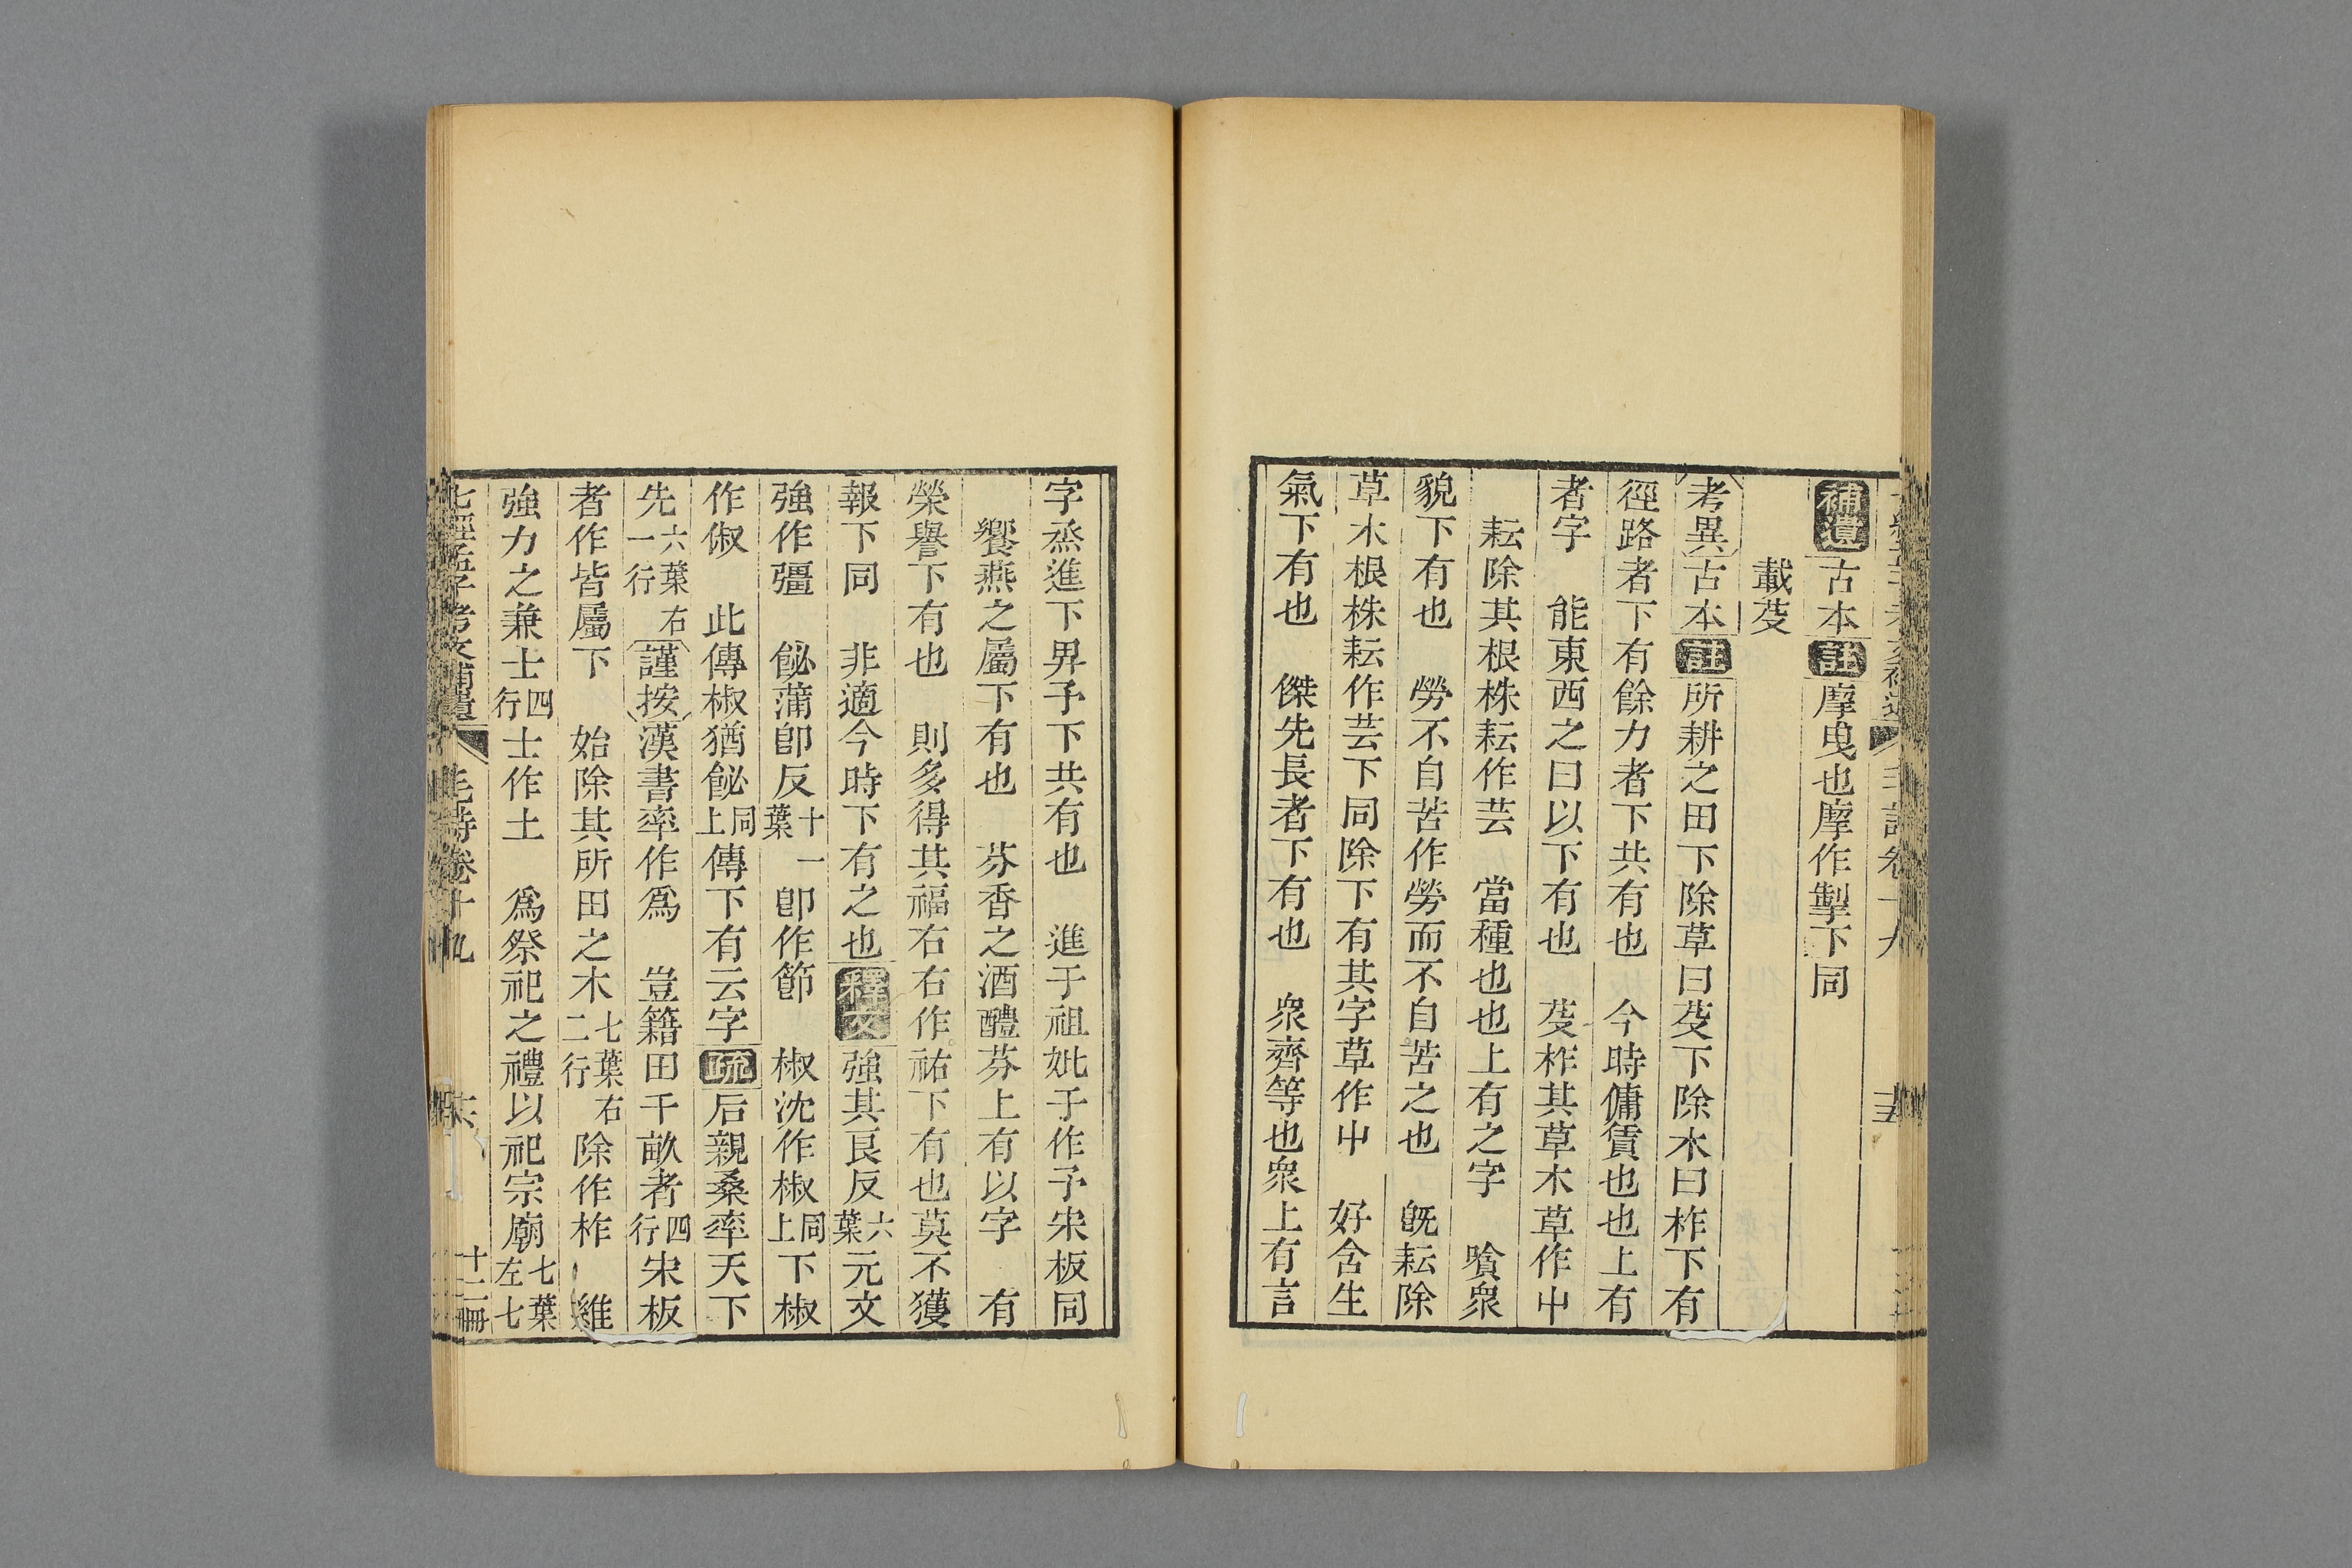 補遺古本註摩曳也摩作掣下同
載芟
考異古本註所耕之田下除草曰芟下除木曰柞下有
徑路者下有餘力者下共有也　今時傭賃也也上有
者字　能東西之曰以下有也　芟柞其草木草作屮
耘除其根株耘作芸　當種也也上有之字　喰衆
貌下有也　勞不自苦作勞而不自苦之也　旣耘除
草木根株耘作芸下同除下有其字草作屮　好含生
氣下有也　傑先長者下有也　衆齊等也衆上有言
字烝進下畀予下共有也　進于祖妣于作予宋板同
饗燕之屬下有也　芬香之酒醴芬上有以字　有
榮譽下有也　則多得其福右右作祐下有也莫不獲
報下同　非適今時下有之也釋文強其良反六葉元文
強作彊　飶蒲卽反十一葉卽作節　椒沈作椒同上下椒
作俶　此傳椒猶飶同上傳下有云字疏后親桑率天下
先六葉右一行謹按漢書率作爲　豈籍田千畝者四行宋板
者作皆屬下　始除其所田之木七葉右二行除作柞　維
強力之兼士四行士作土　爲祭祀之禮以祀宗廟七葉左七
七經孟子考文補遺　毛詩卷十九　十二冊